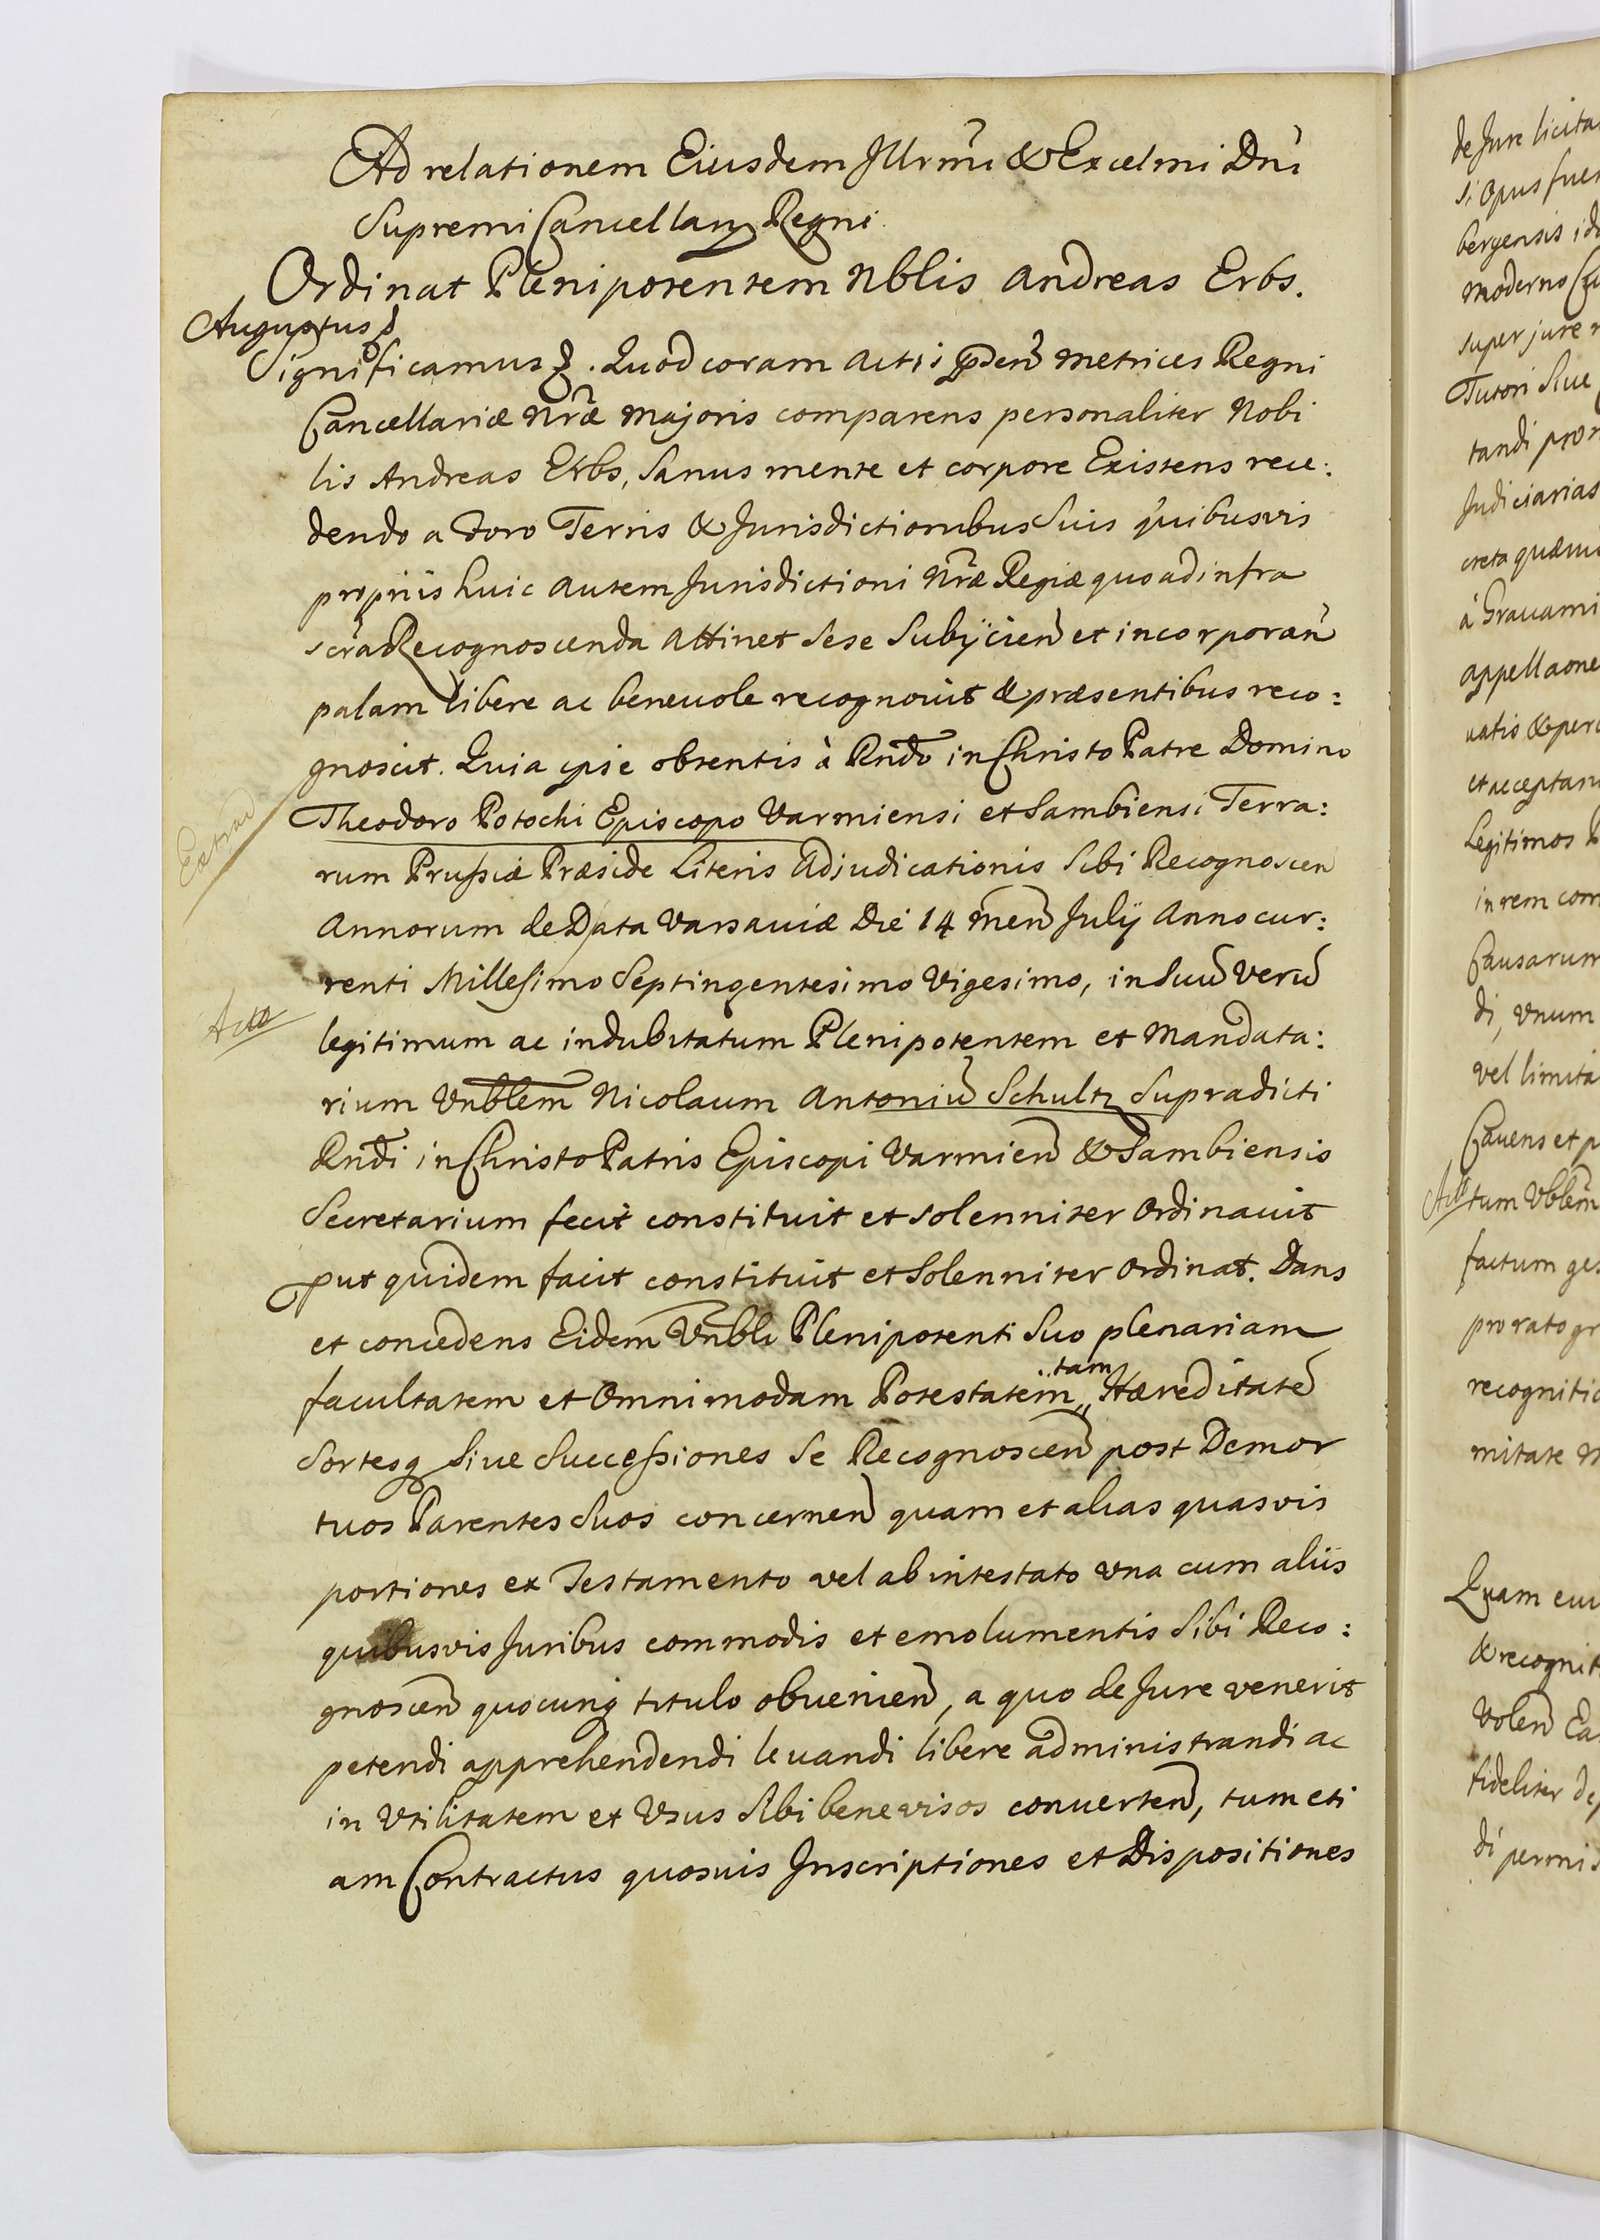 Ad relationem Eiusdem Illrmi & Excelmi Dni
Supremi Cancellarij Regni
Ordinat Plenipotentem Nblis Andreas Erbs.
Augustus
Significamus. Quod coram Actis psen Metrices Regni
Cancellariæ Nræ Majoris comparens personaliter Nobi
lis Andreas Erbs, Sanus mente et corpore Existens rece:
dendo a Foro Terris & Jurisdictionibus Suis quibusvis
propriis huic autem Jurisdictioni Nræ Regiæ quo ad infra
scra Recognoscenda Attinet Sese Subijcien et incorporan
palam libere ac beneuole recognouit & præsentibus reco:
gnoscit. Quia ipse obtentis à Rndo in Christo Patre Domino
Extrad
Theodoro Potochi Episcopo Varmiensi et Sambiensi Terra:
rum Prussiæ Præside Literis Adjudicationis Sibi Recognoscen
Annorum de Data Varsauiæ Die 14 Men July Anno cur:
renti Millesimo Septingentesimo Vigesimo, in Suu Veru
Acto
legitimum ac indubitatum Plenipotentem et Mandata:
rium Vnblem Nicolaum Antoniu Schultz Supradicti
Rndi in Christo Patris Episcopi Varmien & Sambiensis
Secretarium fecit constituit et solenniter Ordinauit
put quidem facit constituit et Solenniter Ordinat. Dans
et concedens Eidem Vnbli Plenipotenti Suo plenariam
..tam
facultatem et Omnimodam Potestatem,, Hæreditate
Sortesq Siue Successiones Se Recognoscen post Demor
tuos Parentes Suos concernen quam et alias quasvis
portiones ex Testamento vel ab intestato vna cum aliis
quibusvis Juribus commodis et emolumentis Sibi Reco:
gnoscen quocunq titulo obuenien, a quo de Jure venerit
petendi apprehendendi leuandi libere administrandi ac
in Vtilitatem et Vsus Sibi bene visos conuerten, tum eti
am Contractus quosuis Inscriptiones et Dispositiones
de Jure licita
si Opus fuer
bergensis id
moderno
super jure
Tutori Siue
tandi pro
Judiciarias
creta
à Grauami
appellaone
uatis & per
et acceptan
Legitimos
in rem com
Causarum
di, vnum
vel limita
Cauens et p
Acto
tum Vblem
factum ges
pro rato gr
recognitio
mitate
Quam
& recognit
Volen Ea
fideliter
di permis